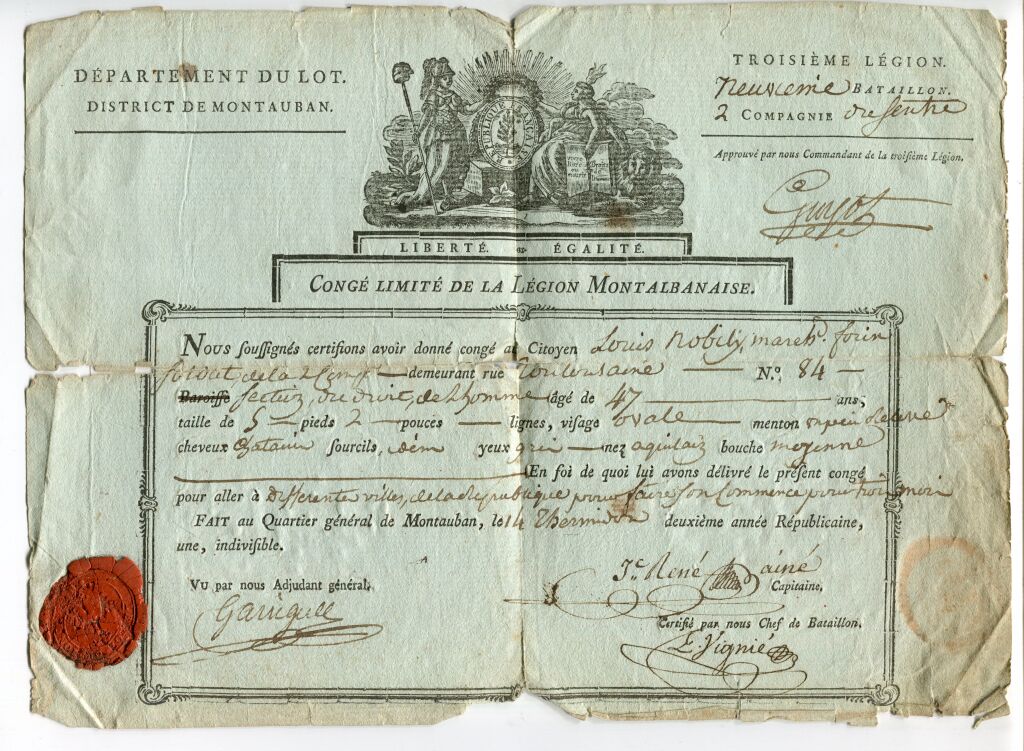 DÉPARTEMENT DU LOT.
DISTRICT DE MONTAUBAN.
TROISIÈME LÉGION.
Neuxieme BATAILLON.
2 COMPAGNIE du Sentre
Approuvé par nous Commandant de la troisième Légion.
Guyot
RÉPUBLIQUE FRANÇAISE
LIBERTÉ. ÉGALITÉ.
CONGÉ LIMITÉ DE LA LÉGION MONTALBANAISE.
NOUS soussignés certifions avoir donné congé au Citoyen Louis Nobily, marchd. forin
soldat de la 2 Compe demeurant rue Toulousaine N.º 84
Paroisse section du droit de Lhomme âgé de 47 ans;
taille de 5 pieds 2 pouces lignes, visage ovale menton
cheveux chatain sourcils, idem yeux gris nez aquilain bouche moyenne
En foi de quoi lui avons délivré le présent congé
pour aller à Differente villes, de la République pour faire son Commerce pour trois moix
FAIT au Quartier général de Montauban, le 14 Thermidor deuxième année Républicaine,
une, indivisible.
VU par nous Adjudant général,
Garrigue
Jc René ainé
Capitaine.
Certifié par nous Chef de Bataillon.
E. Vignié